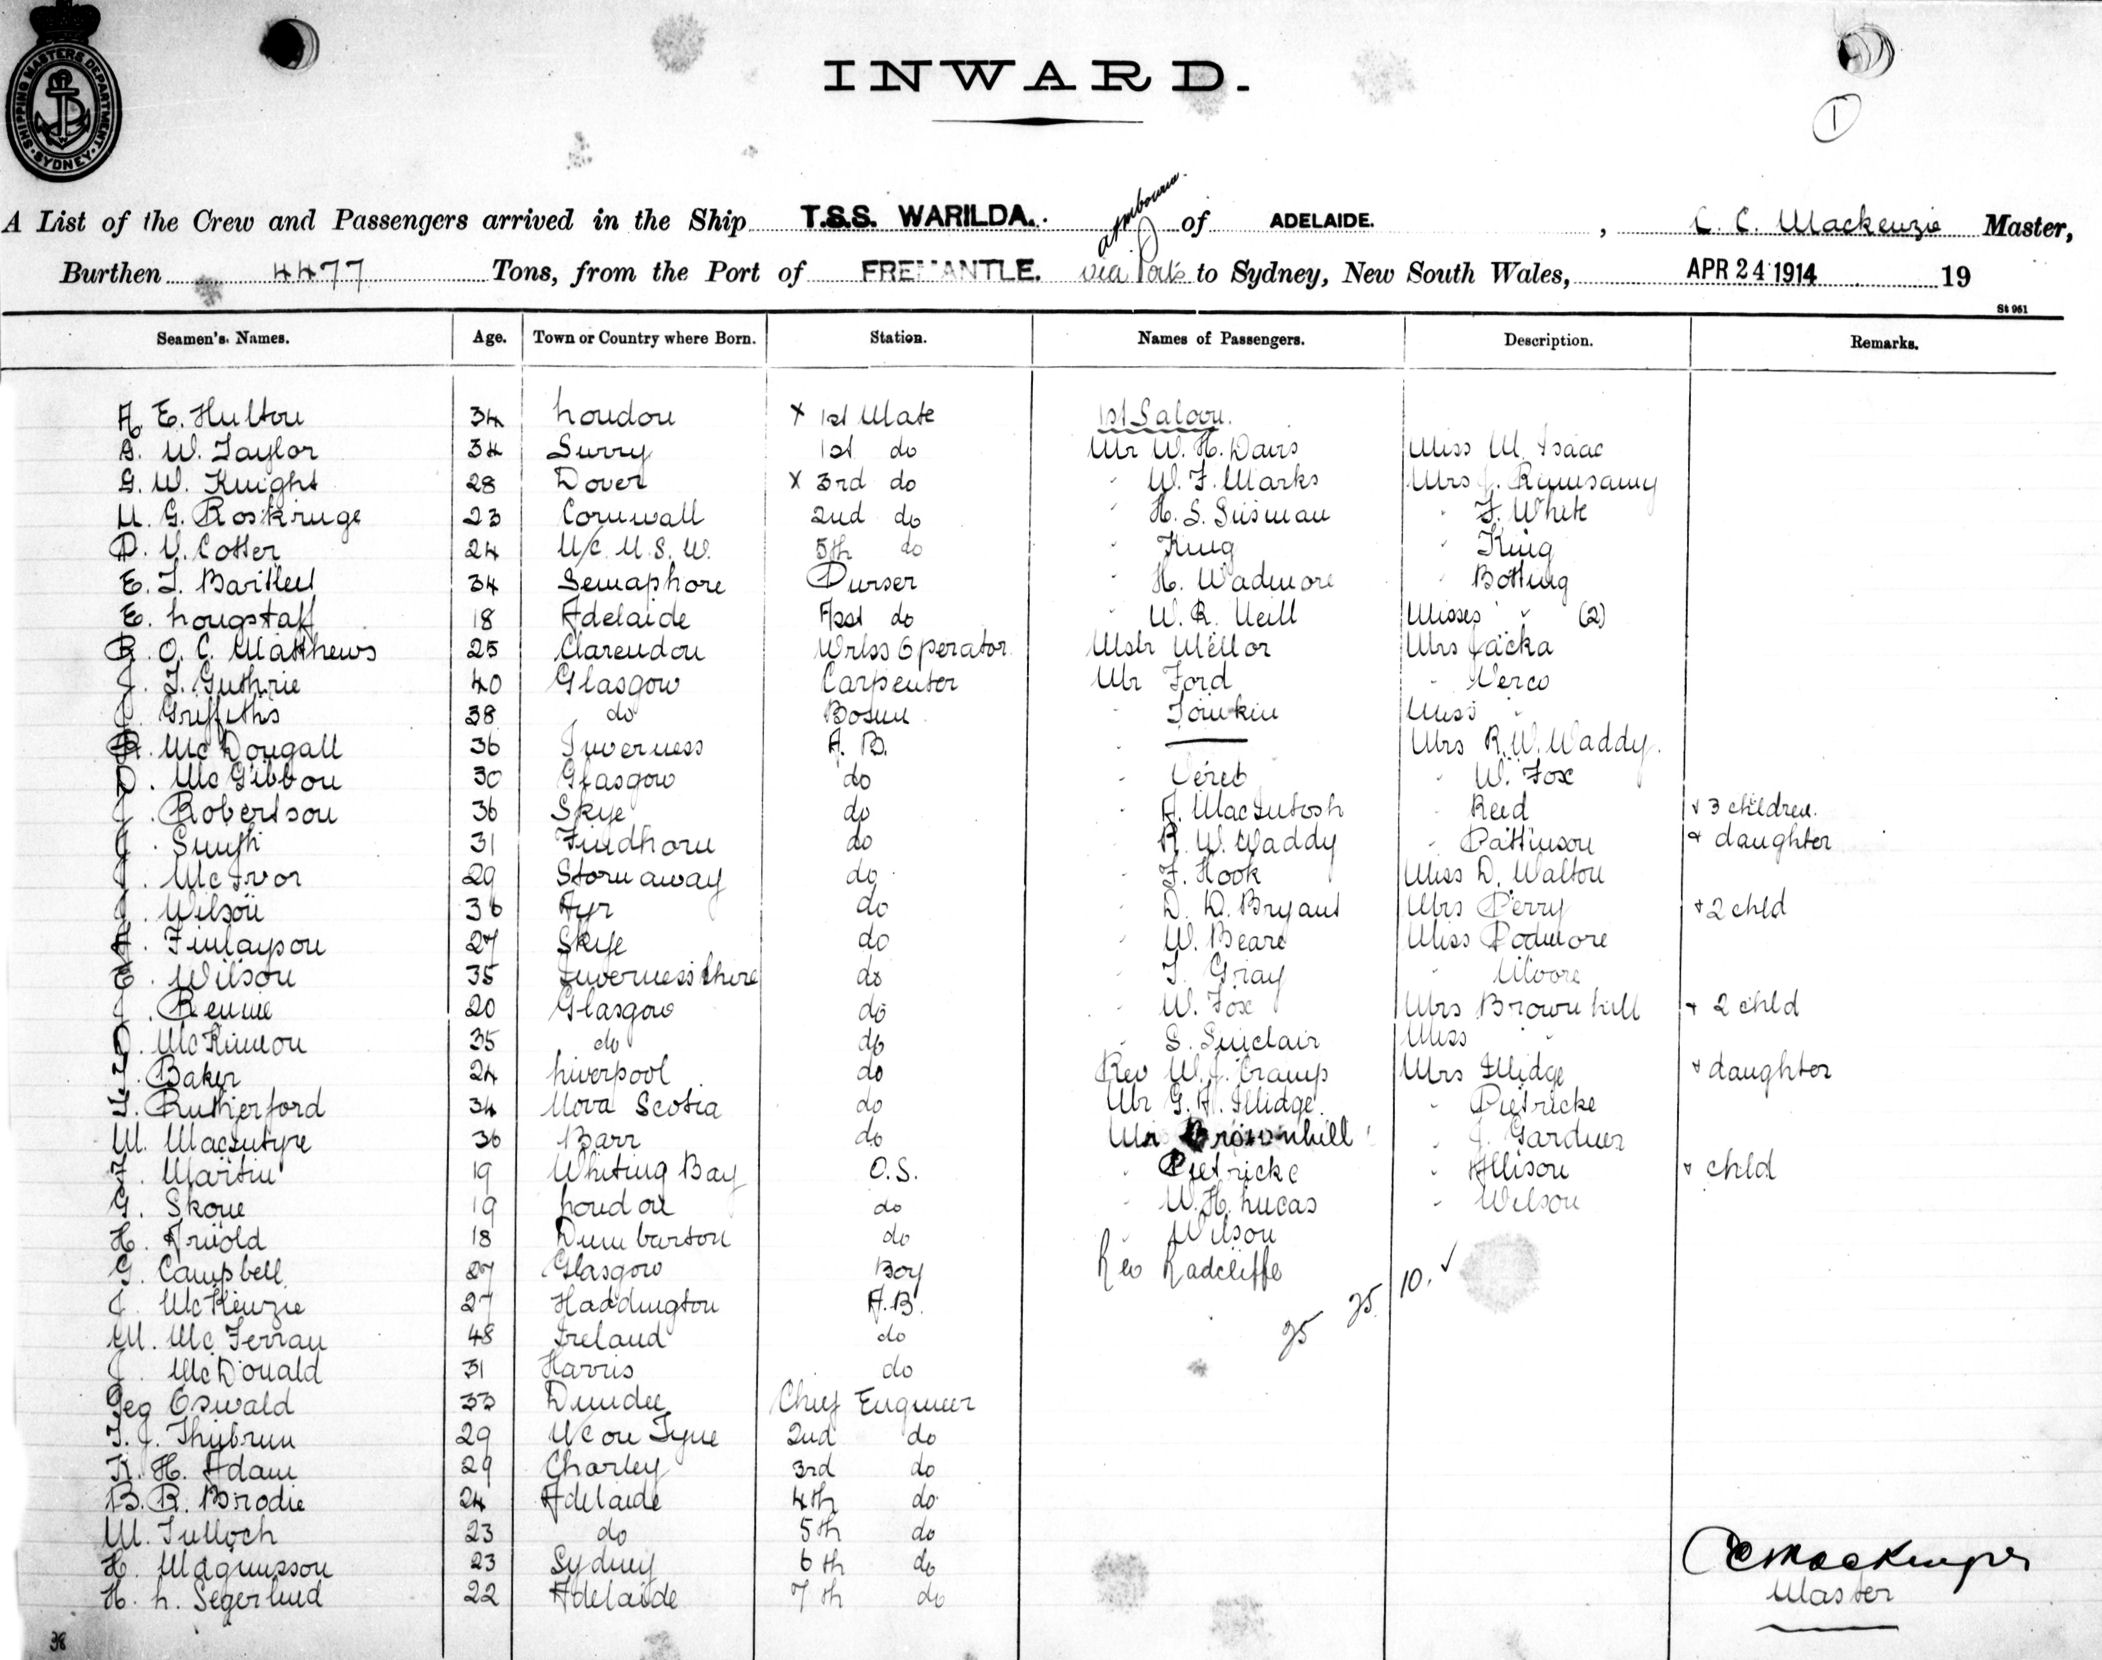 SHIPPING MASTERS DEPARTMENT
SYDNEY
INWARD.
1
A List of the Crew and Passengers arrived in the Ship T.S.S. WARILDA. of ADELAIDE. , C. C. Mackenzie Master,
Burthen 4477 Tons, from the Port of FREMANTLE. via Ports to Sydney, New South Wales, APR 24 1914 19
St 961
Seamen's Names. Age. Town or Country where Born. Station. Names of Passengers. Description. Remarks.
A. E. Hulton 34 London x 1st Mate 1st Saloon.
A. W. Taylor 34 Surry 1st do Mr W. H. Davis Miss M. Isaac
G. W. Knight 28 Dover x 3rd do " W. F. Marks Mrs J. Rumsamy
N. G. Roskruge 23 Cornwall 2nd do " H. S. Susman " F. White
D. V. Cotter 24 N/c N.S.W. 5th do " King " King
E. T. Bartlett 34 Semaphore Purser " H. Wadmore " Botting
E. Longstaff 18 Adelaide Asst do " W. R. Neill Misses " (2)
R. O. C. Matthews 25 Clarendon Wrlss Operator Mstr Mellor Mrs Jacka
J. T. Guthrie 40 Glasgow Carpenter Mr Ford " Verco
J. Griffiths 38 do Bosun " Tomkin Miss "
R. McDougall 36 Inverness A. B. " Mrs R. W. Waddy.
D. McGibbon 30 Glasgow do " Verco " W. Fox
J. Robertson 36 Skye do " A. MacIntosh " Reed + 3 children.
J. Smith 31 Findhorn do " R. W. Waddy " Pattinson + daughter
J. McIvor 29 Stornaway do " F. Hook Miss D. Walton
J. Wilson 36 Ayr do " D. D. Bryant Mrs Perry + 2 chld
A. Finlayson 27 Skye do " W. Beare Miss Podmore
E. Wilson 35 Invernesshire do " T. Gray " Moore
J. Rennie 20 Glasgow do " W. Fox Mrs Brownhill + 2 chld
D. McKinnon 35 do do " S. Sinclair Miss "
T. Baker 24 Liverpool do Rev W. J. Cramp Mrs Illidge + daughter
T. Rutherford 34 Nova Scotia do Mr G. H. Illidge. " Pietricke
M. MacIntyre 36 Barr do Mr Brownhill " J. Gardner
F. Martin 19 Whiting Bay O.S. " Pietricke " Allison + chld
G. Skone 19 London do " W. H. Lucas " Wilson
H. Arnold 18 Dumbarton do " Wilson
G. Campbell 27 Glasgow Boy Rev Radcliffe
J. McKenzie 27 Haddington A.B. 25 25. 10. ✓
M. McFerran 48 Ireland do
J. McDonald 31 Harris do
Geo Oswald 33 Dundee Chief Engineer
T. J. Thubrun 29 N/C on Tyne 2nd do
K. H. Adam 29 Chorley 3rd do
B. R. Brodie 24 Adelaide 4th do
M. Tulloch 23 do 5th do
H. Magnusson 23 Sydney 6th do
H. L. Segerlind 22 Adelaide 7th do
CC Mackenzie
Master
38